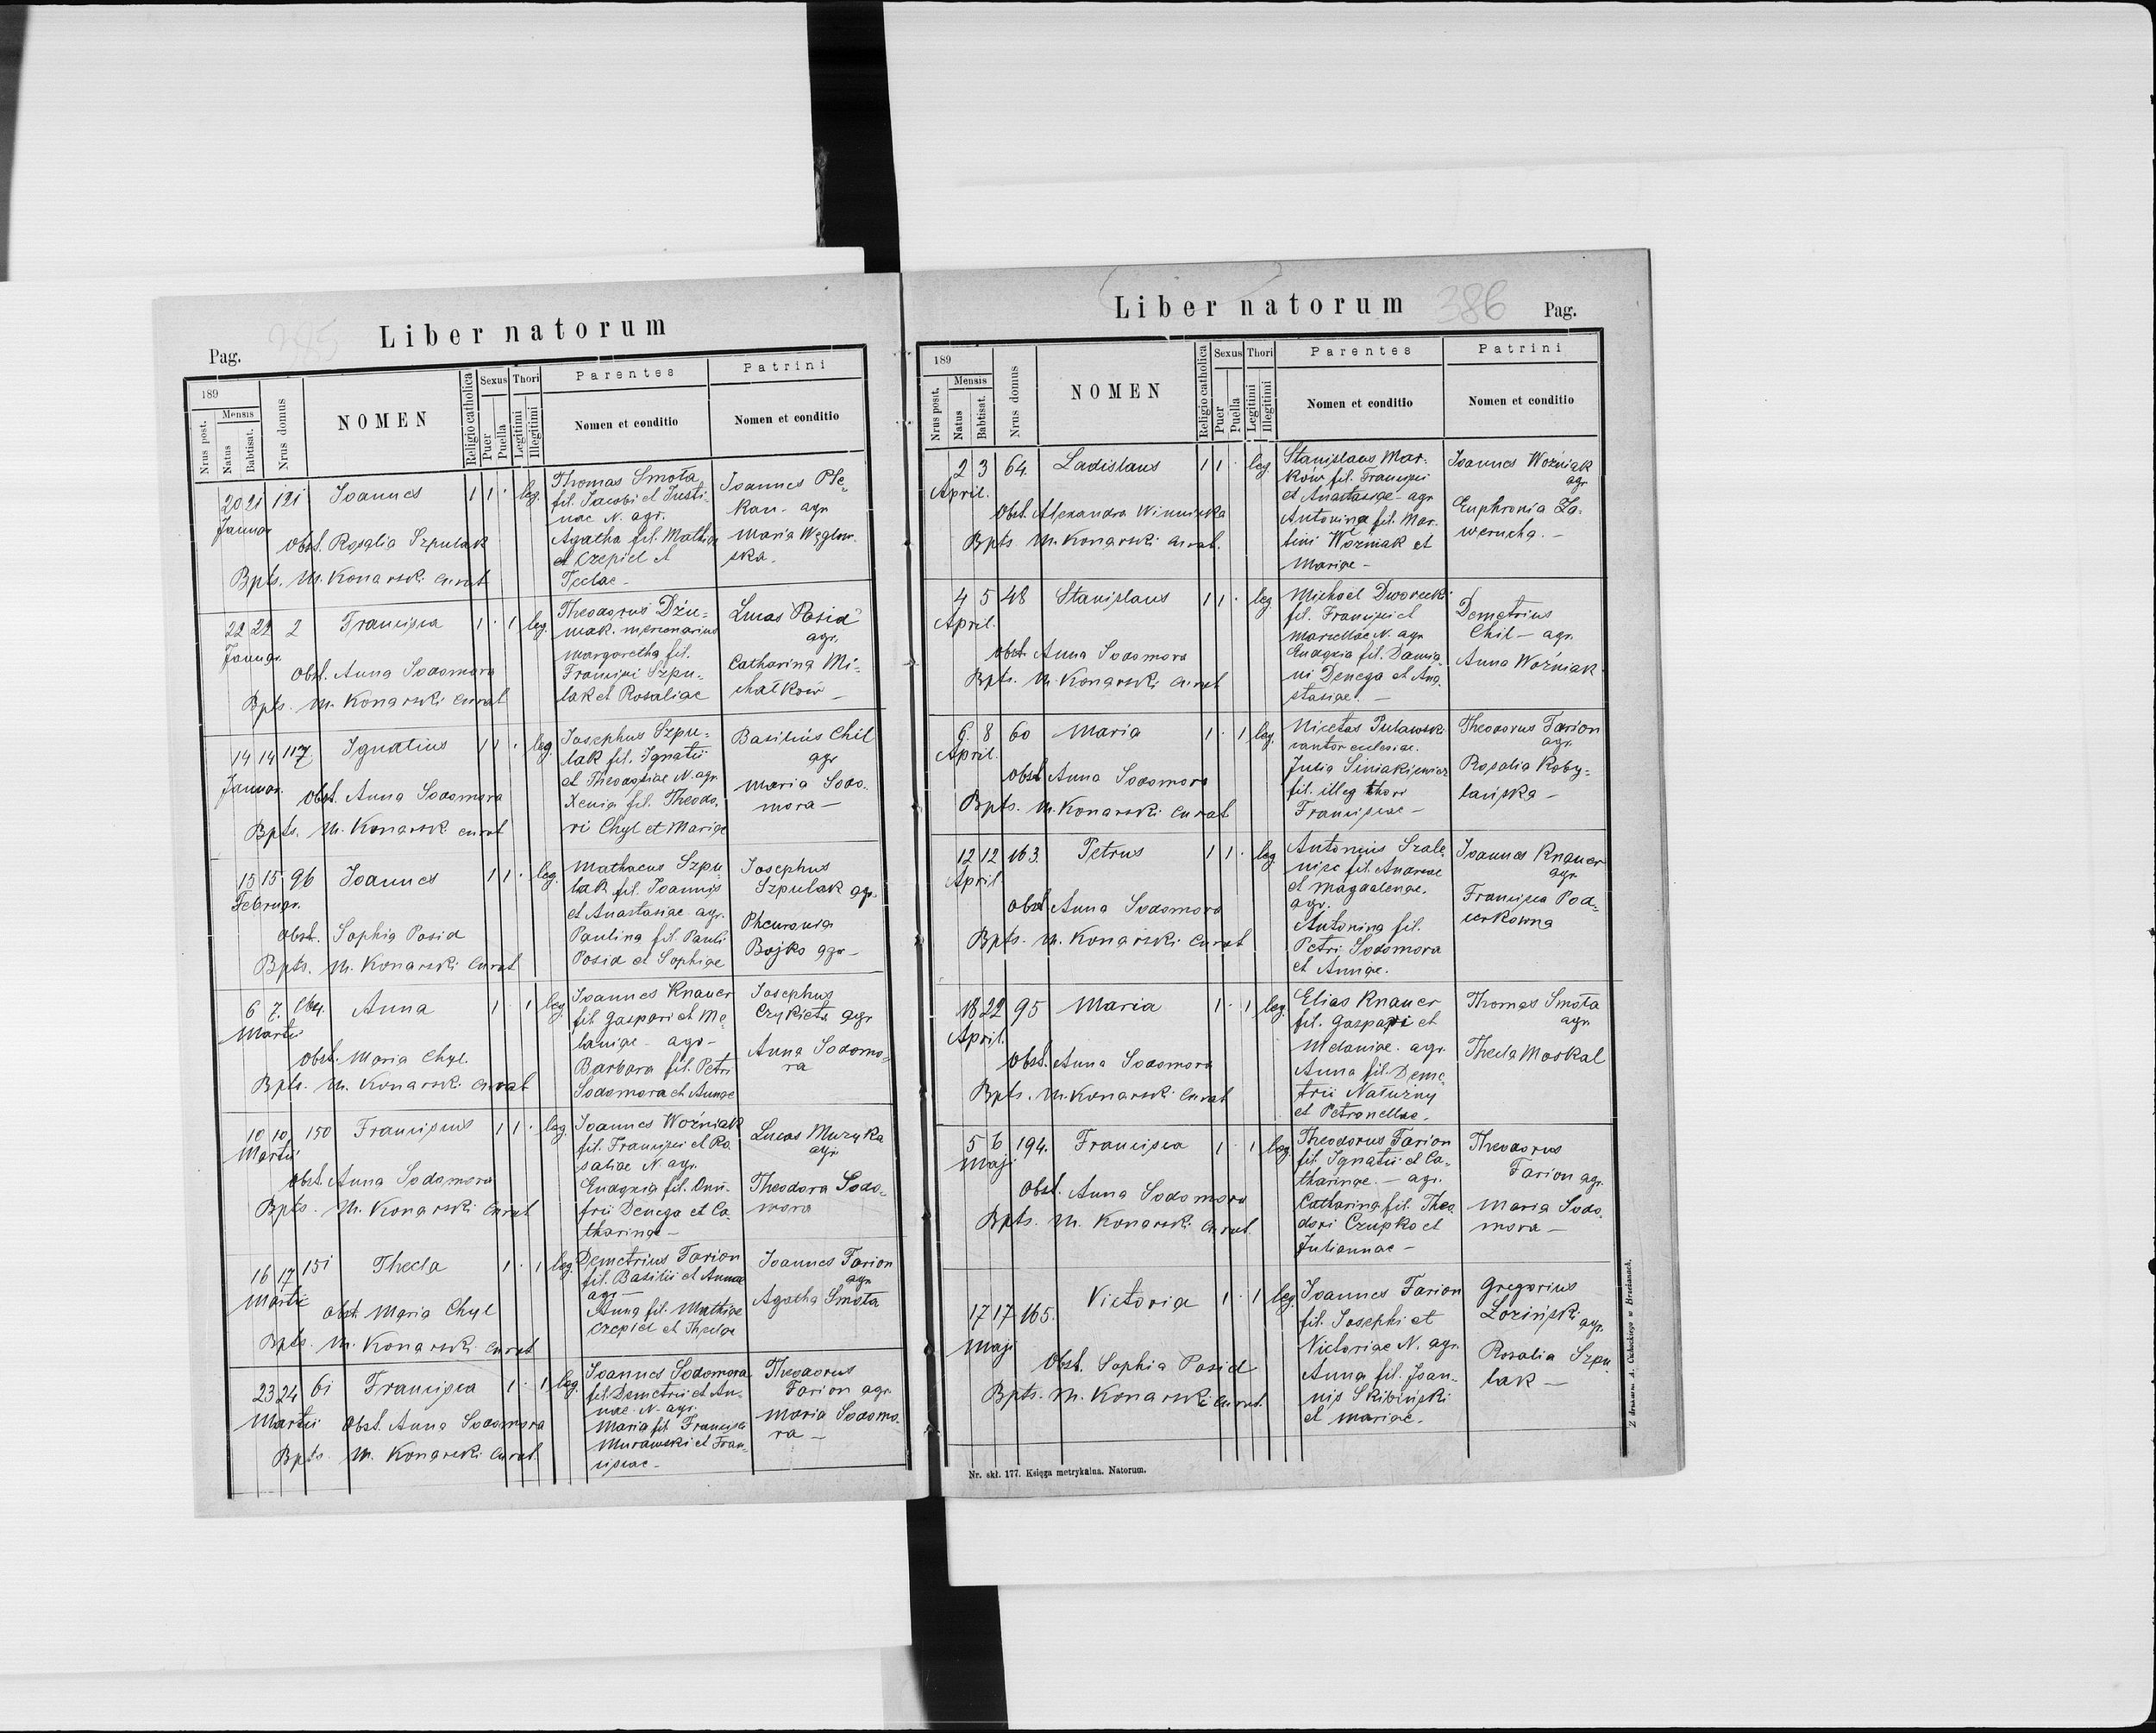 Liber natorum
Pag.
189
Nrus post.
Mensis
Natus
Babtisat.
Nrus domus
NOMEN
Religio catholica
Sexus
Puer
Puella
Thori
Legitimi
Illegitimi
Parentes
Nomen et conditio
Patrini
Nomen et conditio
20 21 121 Joannes 1 1 · leg.
Januar
Obst. Rosalia Szpulak
Bpts. M. Konarski Curat
Thomas Smota
fil. Jacobi et Justi-
nae N. agr.
Agatha fil. Mathiae
et Czepiel et
Teclae -
Joannes Ple-
kan - agr
Maria Węglow-
ska.
22 22 2 Francisca 1 · 1 leg.
Januar.
Obst. Anna Sodomora
Bpts. M. Konarski Curat
Theodorus Dziu-
mak. mercenarius
Margaretha fil.
Francisci Szpu-
lak et Rosaliae
Lucas Posid
agr.
Catharina Mi-
chałków -
14 14 117 Ignatius 1 1 · leg.
Januar.
Obst. Anna Sodomora
Bpts. M. Konarski curat
Josephus Szpu-
lak fil. Ignatii
et Theodosiae N. agr.
Xenia fil. Theodo-
ri Chyl et Mariae
Basilius Chil
agr
Maria Sodo-
mora -
15 15 96 Joannes 1 1 · leg.
Februar.
Obst. Sophia Posid
Bpts. M. Konarski Curat
Mathaeus Szpu-
lak fil. Joannis
et Anastasiae agr.
Paulina fil. Pauli
Posid et Sophiae
Josephus
Szpulak agr.
Pheuronia
Bojko agr -
6 7. 164. Anna 1 · 1 leg.
Martii
Obst. Maria Chyl.
Bpts. M. Konarski Curat
Joannes Knauer
fil. Gaspari et Me-
laniae - agr -
Barbara fil. Petri
Sodomora et Annae
Josephus
Czykieta agr
Anna Sodomo-
ra
10 10 150 Franciscus 1 1 · leg.
Martii
Obst. Anna Sodomora
Bpts. M. Konarski Curat
Joannes Woźniak
fil. Francisci et Ro-
saliae N. agr.
Eudoxia fil. Onu-
frii Denega et Ca-
tharinae -
Lucas Muzyka
agr
Theodora Sodo-
mora
16 17 151 Thecla 1 · 1 leg.
Martii
Obst. Maria Chyl
Bpts. M. Konarski Curat
Demetrius Farion
fil. Basilii et Annae
agr -
Anna fil. Mathiae
Czepiel et Theclae
Joannes Farion
agr
Agatha Smota
23 24 61 Francisca 1 · 1 leg.
Martii
Obst. Anna Sodomora
Bpts. M. Konarski Curat
Joannes Sodomora
fil. Demetrii et An-
nae N. agr.
Maria fil. Francisci
Murawski et Fran-
ciscae -
Theodorus
Farion agr
Maria Sodomo-
ra -
Liber natorum
386
Pag.
189
Nrus posit.
Mensis
Natus
Babtisat.
Nrus domus
NOMEN
Religio catholica
Sexus
Puer
Puella
Thori
Legitimi
Illegitimi
Parentes
Nomen et conditio
Patrini
Nomen et conditio
2 3 64. Ladislaus 1 1 · leg.
April.
Obst. Alexandra Winnicka
Bpts. M. Konarski Curat.
Stanislaus Mar-
ków fil. Francisci
et Anastasiae - agr
Antonina fil. Mar-
tini Woźniak et
Mariae -
Joannes Woźniak
agr
Euphronia Za-
werucha. -
4 5 48 Stanislaus 1 1 · leg
April.
Obst. Anna Sodomora
Bpts. M. Konarski Curat
Michaël Dworecki
fil. Francisci et
Marcellae N. agr
Eudoxia fil. Damia-
ni Denega et Ana-
stasiae. -
Demetrius
Chil - agr.
Anna Woźniak
6. 8 60 Maria 1 · 1 leg.
April.
Obst Anna Sodomora
Bpts. M. Konarski Curat
Nicetas Pulawski
cantor ecclesiae.
Julia Siniakiewicz
fil. illeg thori
Franciscae -
Theodorus Farion
agr.
Rosalia Koby-
lańska -
12 12 163. Petrus 1 1 · leg
April.
Obst Anna Sodomora
Bpts. M. Konarski Curat
Antonius Szale-
niec fil. Andreae
et Magdalenae.
agr.
Antonina fil.
Petri Sodomora
et Annae.
Joannes Knauer
agr
Francisca Pod-
cerkowna
18 22 95 Maria 1 · 1 leg.
April.
Obst. Anna Sodomora
Bpts. M. Konarski Curat
Elias Knauer
fil. Gaspari et
Melaniae. agr.
Anna fil. Deme-
trii Natużny
et Petronellae.
Thomas Smota
agr
Thecla Moskal
5 6 194. Francisca 1 · 1 leg.
Maji
Obst. Anna Sodomora
Bpts. M. Konarski Curat
Theodorus Farion
fil. Ignatii et Ca-
tharinae. - agr.
Catharina fil. Theo-
dori Czupko et
Juliannae -
Theodorus
Farion agr.
Maria Sodo-
mora -
17 17 165. Victoria 1 · 1 leg.
Maji
Obst. Sophia Posid
Bpts. M. Konarski Curat.
Joannes Farion
fil. Josephi et
Victoriae N. agr.
Anna fil. Joan-
nis Skibiński
et Mariae.
Gregorius
Łoziński agr.
Rosalia Szpu-
lak -
Nr. skł. 177. Księga metrykalna. Natorum.
Z drukarni A. Cichockiego w Brzeżanach.